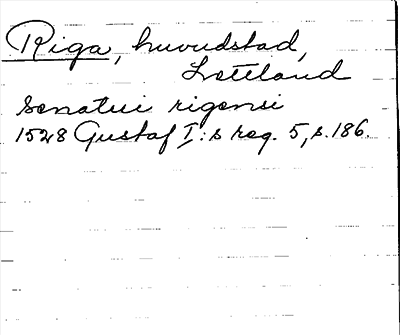 Riga, huvudstad,
Lettland
Senatui rigensi
1528 Gustaf I:s reg. 5, s. 186.